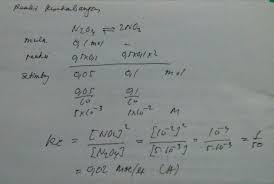 Reaksi Kesetimbangan
N2O4 ⇌ 2NO2
mula 0,1 mol -
reaksi 0,5x0,1 0,5x0,1x2
setimbg 0,05 0,1 mol
0,05/10 0,1/10
5x10^-3 1x10^-2 M
Kc = [NO2]^2/[N2O4] = [10^-2]^2/[5.10^-3] = 10^-4/5.10^-3 = 1/50
= 0,02 mol/lt (A)